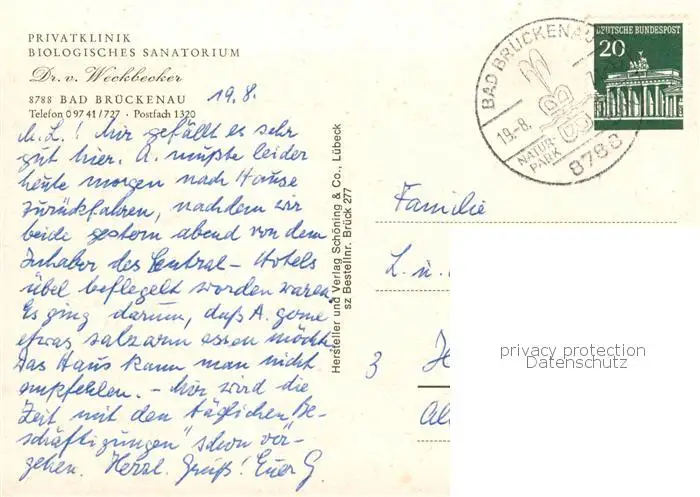 PRIVATKLINIK
BIOLOGISCHES SANATORIUM
Dr. v. Weckbecker
8788 BAD BRÜCKENAU
Telefon 0 97 41 / 727 · Postfach 1320
19.8.
M. L.! Mir gefällt es sehr
gut hier. A. mußte leider
heute morgen nach Hause
zurückfahren, nachdem wir
beide gestern abend von dem
Inhaber des Central-Hotels
übel beflegelt worden waren.
Es ging darum, daß A. gerne
etwas salzarm essen möchte.
Das Haus kann man nicht
empfehlen. – Mir wird die
Zeit mit den täglichen Be-
schäftigungen" schon vor-
gehen. Herzl. Grüß! Euer G.
Hersteller und Verlag Schöning & Co., Lübeck
sz Bestellnr. Brück 277
BAD BRÜCKENAU
19.-8.
NATUR-
PARK
8788
DEUTSCHE BUNDESPOST
20
Familie
L. u.
3
privacy protection
Datenschutz